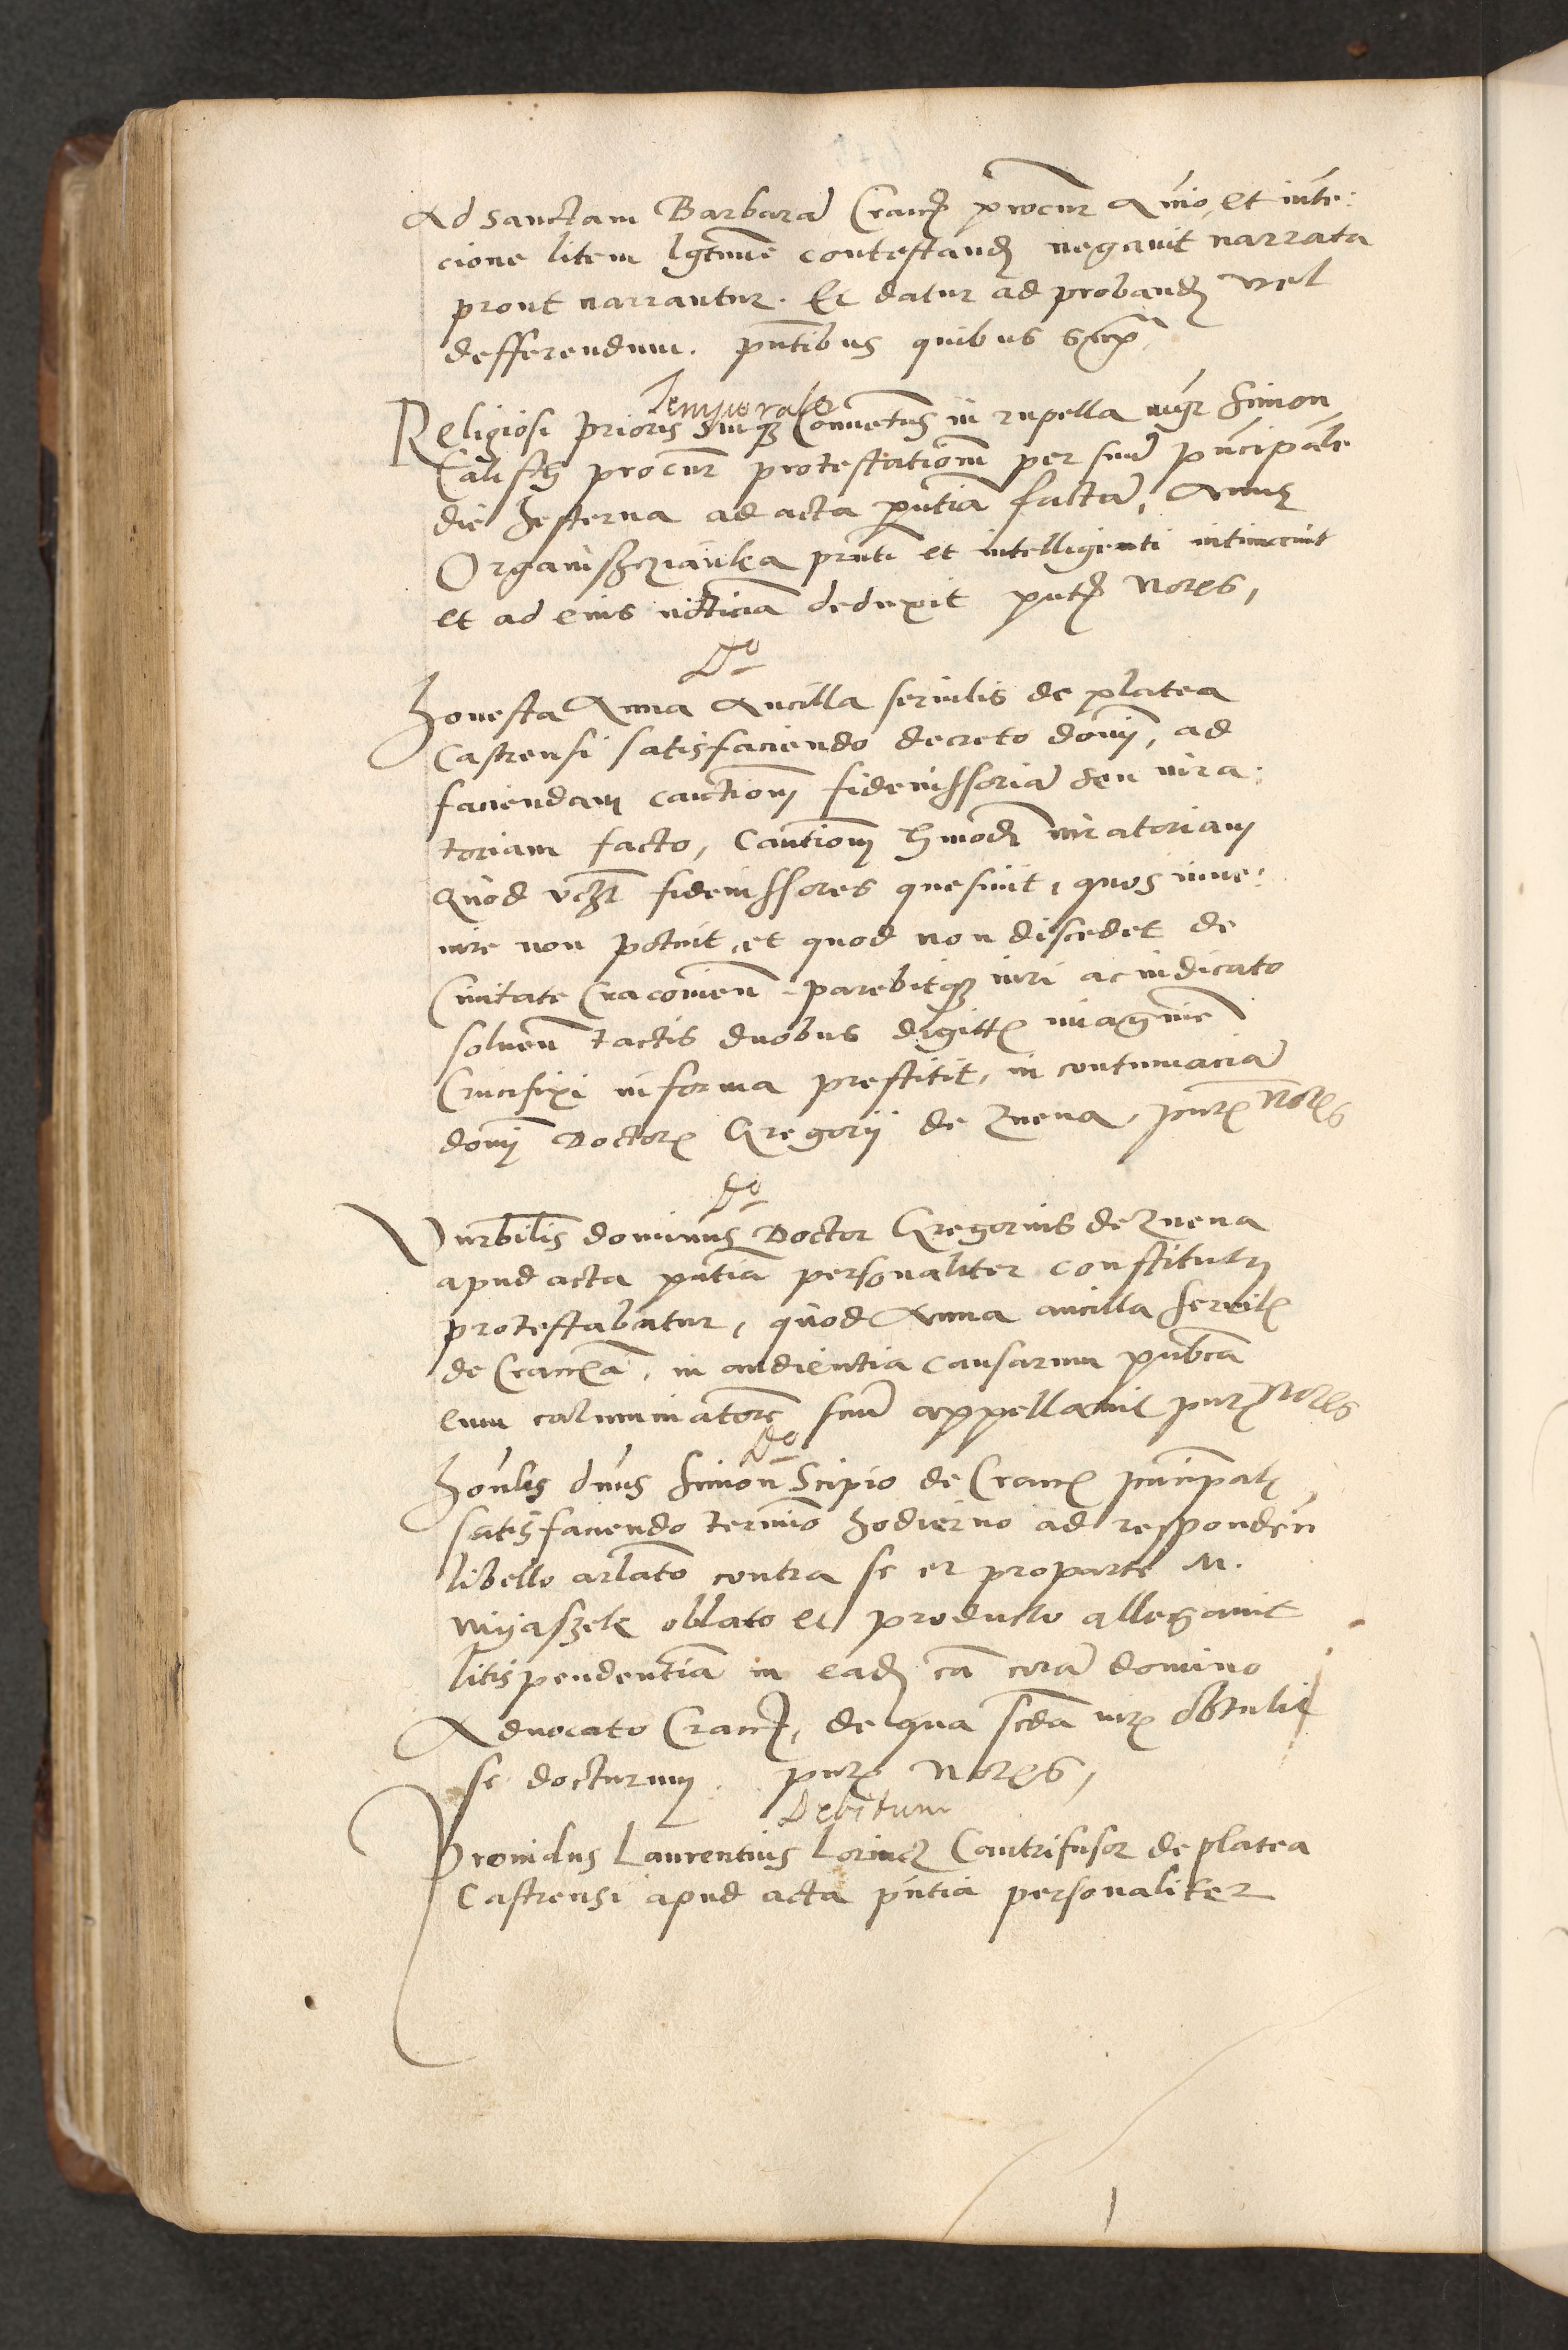 Ad sanctam Barbara Crac procur a͞nio, et inte:
cione litem lgtme contestand negavit narrata
prout narrantur. Et datur ad proband vel
defferendum. pntibus quibus sup
Temporale
Religiosi Prioris suiq Conventus in rupella mgr Simon
Calisch procur protestationem per suu principale
die hesterna ad acta pntia facta, Anne
Organischczianka pnti et intelligenti intimavit
et ad eius noticia deduxit pnt Nores,
Do
Honesta Anna Ancilla servilis de platea
Castrensi satisfaciendo decreto domi, ad
faciendam cauctionem fideiussoria seu iura:
toriam facto, Cautionem hmodi iuratoriam
quod vzlt fideiussores quesivit, quos inve:
nire non potuit, et quod non discedet de
Civitate Cracovien parebitq iuri ac iudicato
solven tactis duobus digitis imagine
Crucifixi in forma prestitit, in contumacia
domi Doctoris Gregorii de Znena, pnt Nores
Do
Venrbilis dominus Doctor Gregorius de Znena
apud acta pntia personaliter constitutus
protestabatur, quod Anna ancilla servilis
de Cracovia, in audientia causarum publica
eum calumniatore suu appellavit pnt Nores
Do
Honlis dnus Simon Scipio de Crac principalis
satisfaciendo termino hodierno ad responden
libello arlato contra se et pro parte M.
Myaszek oblato et producto allegavit
litispendentia in ead ca cora domino
Advocato Crac, de qua scda iuris obtulit
se docturum. pnt Nores,
Debitum
Providus Laurentius Lorincz Cantrifusor de platea
Castrensi apud acta pntia personaliter